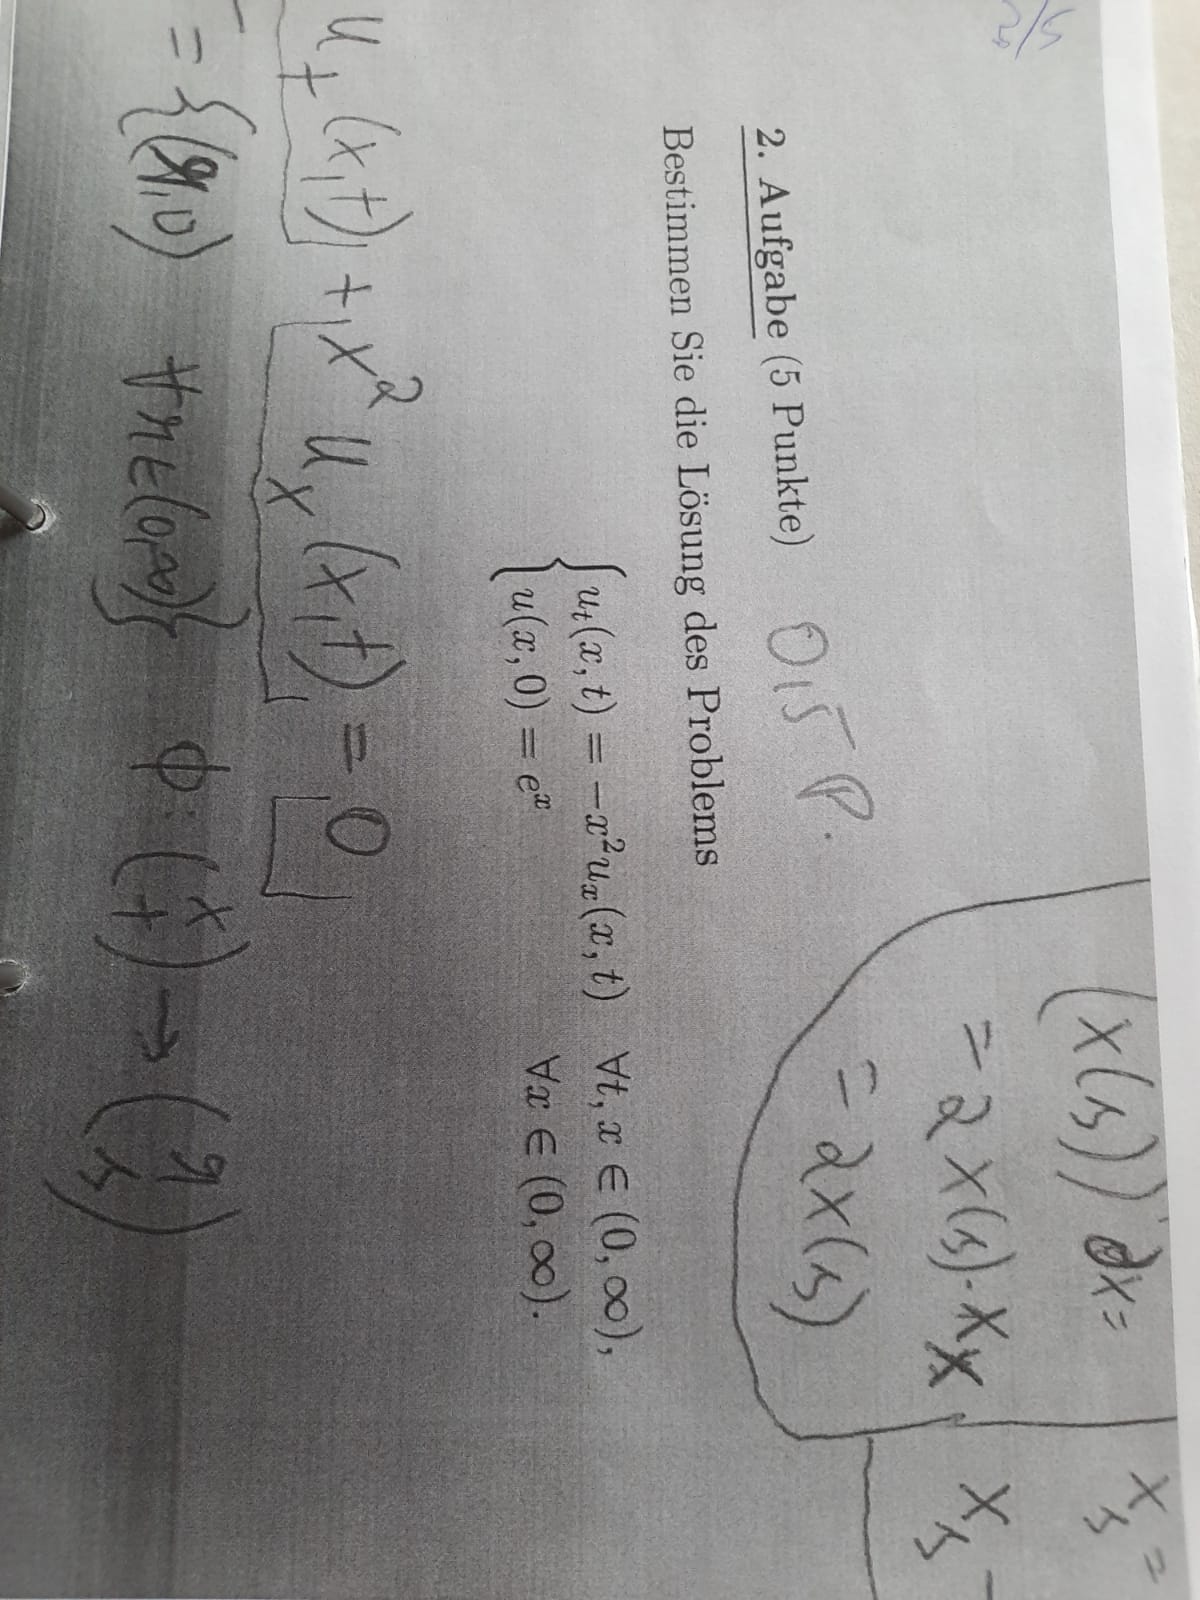 (x(s))' dx=
= 2x(s)·x_x
= 2x(s)
x_s =
x_s -
2. Aufgabe (5 Punkte) 0,5 P.
Bestimmen Sie die Lösung des Problems
u_t(x, t) = −x²u_x(x, t) ∀t, x ∈ (0, ∞),
u(x, 0) = e^x ∀x ∈ (0, ∞).
u_t (x,t) + x² u_x (x,t) = 0
= {(r,0) ∀r∈(0,∞)} ϕ: (x t) → (r s)